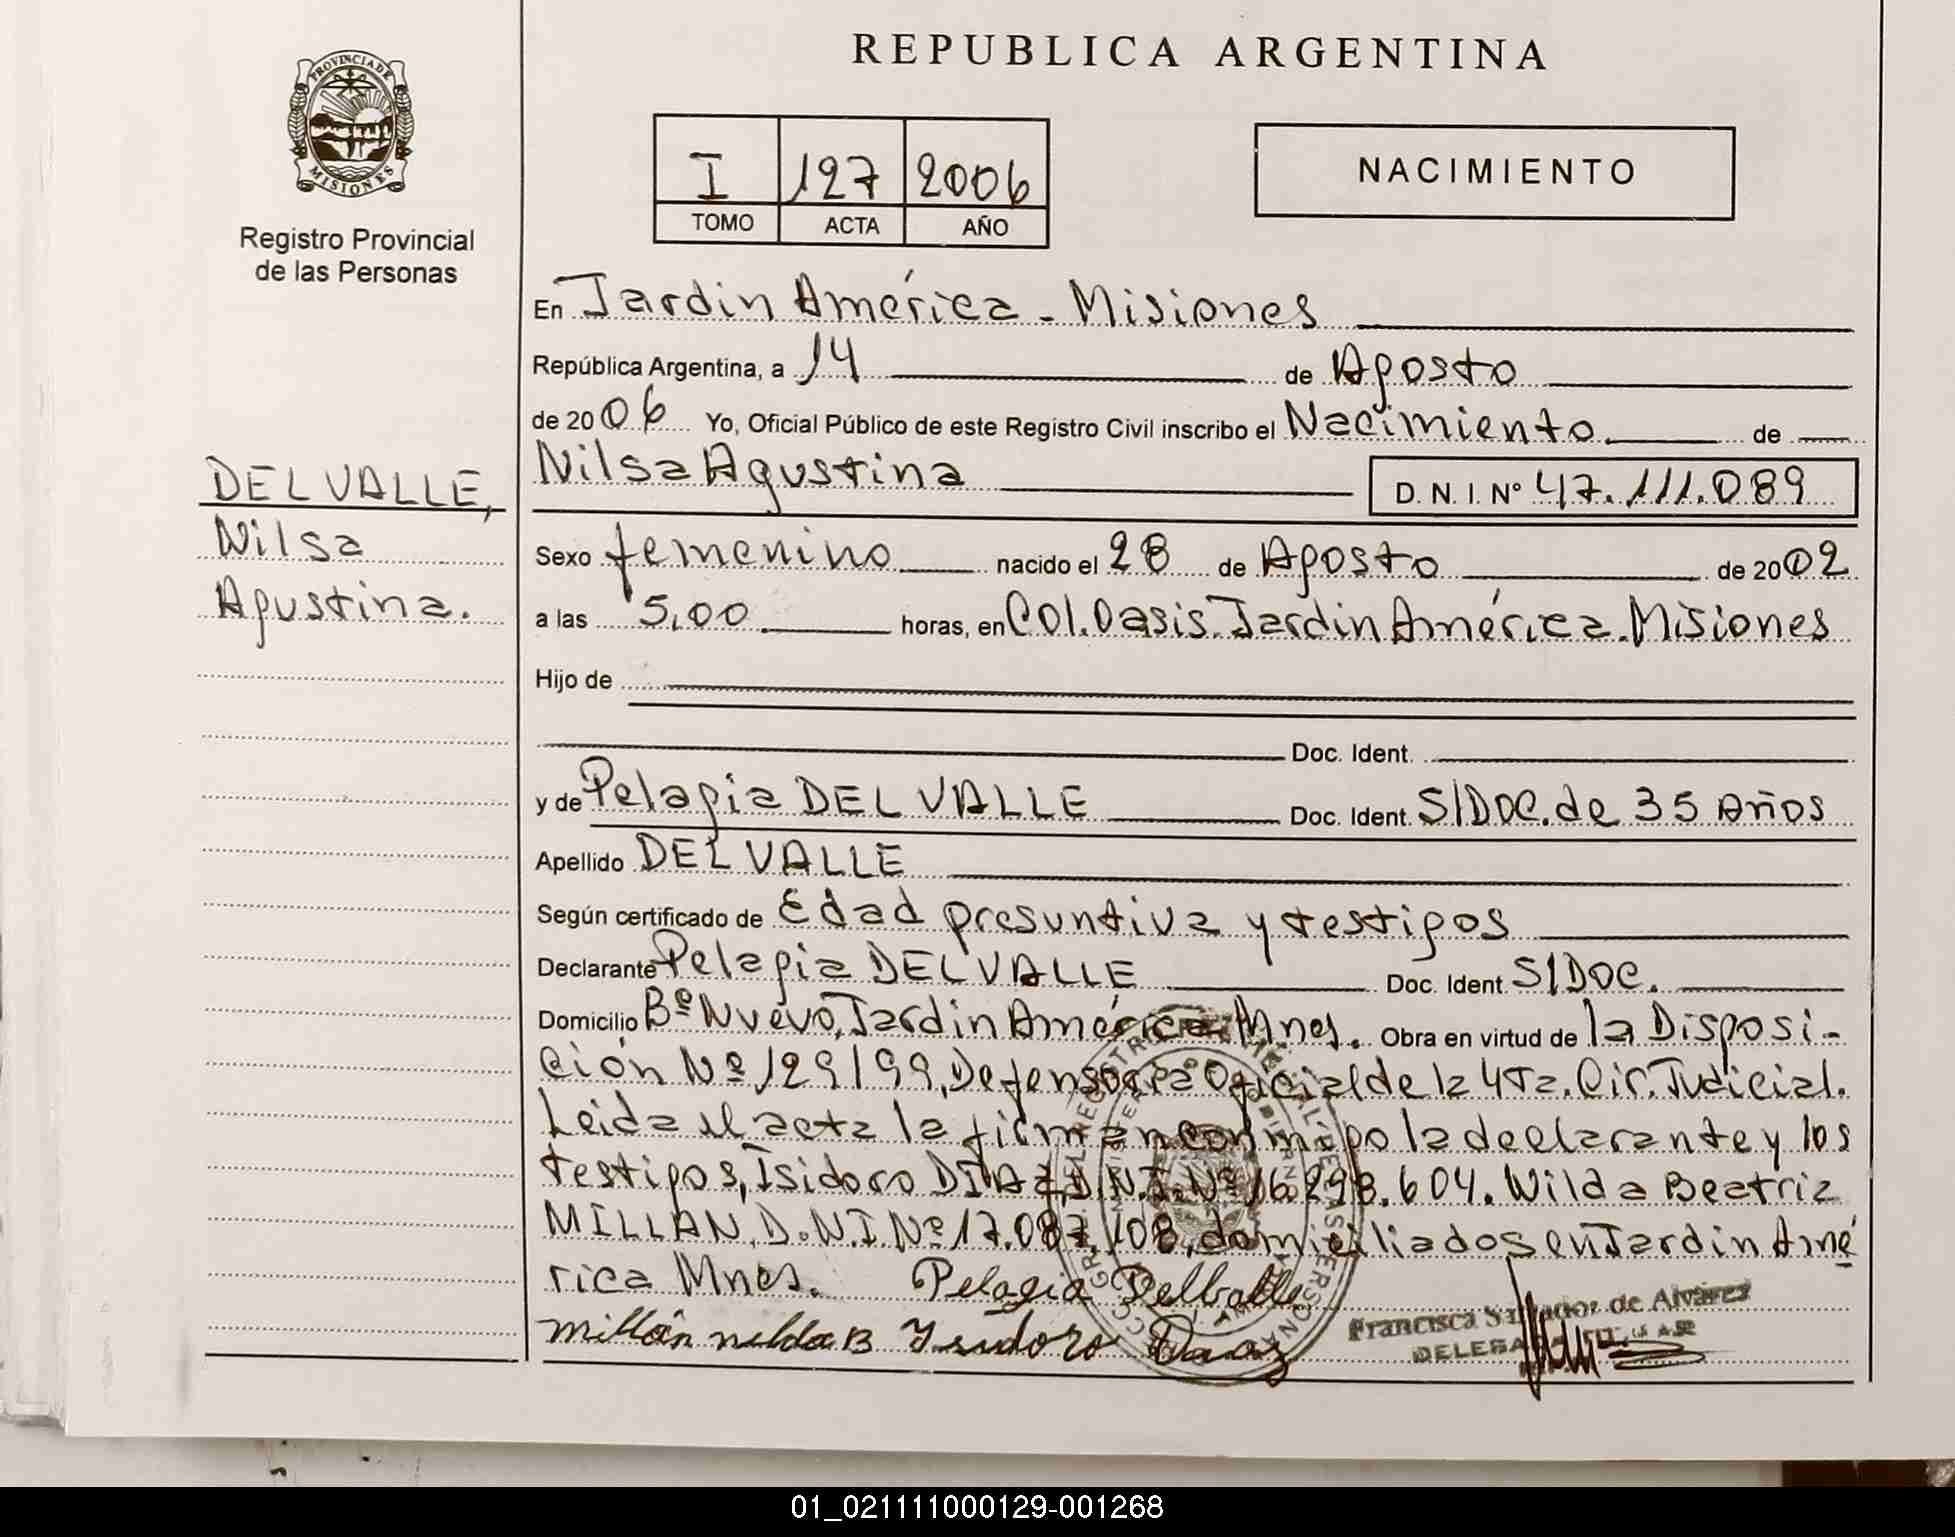 REPUBLICA ARGENTINA
PROVINCIA DE
MISIONES
Registro Provincial
de las Personas
I 127 2006
TOMO ACTA AÑO
NACIMIENTO
DEL VALLE,
Nilsa
Agustina.
En Jardin América - Misiones
República Argentina, a 14 de Agosto
de 2006 Yo, Oficial Público de este Registro Civil inscribo el Nacimiento de
Nilsa Agustina D. N. I. Nº 47.111.089
Sexo femenino nacido el 28 de Agosto de 2002
a las 5,00 horas, en Col. Oasis. Jardin América. Misiones
Hijo de
Doc. Ident.
y de Pelagia DEL VALLE Doc. Ident. S/DOC. de 35 Años
Apellido DEL VALLE
Según certificado de Edad presuntiva y testigos
Declarante Pelagia DEL VALLE Doc. Ident. S/DOC.
Domicilio Bº Nuevo, Jardin América Mnes. Obra en virtud de la Disposi-
ción Nº 129/99, Defensoria Oficial de la 4ta. Cir. Judicial.
Leida el acta la firman conmigo la declarante y los
testigos, Isidoro DIAZ, D.N.I. Nº 16.298.604. Wilda Beatriz
MILLAN, D.N.I Nº 17.087.108, domiciliados en Jardin Amé
rica Mnes. Pelagia Delballe
Millán nelda B Ysidoro Diaz
Francisca de Alvarez
01_021111000129-001268